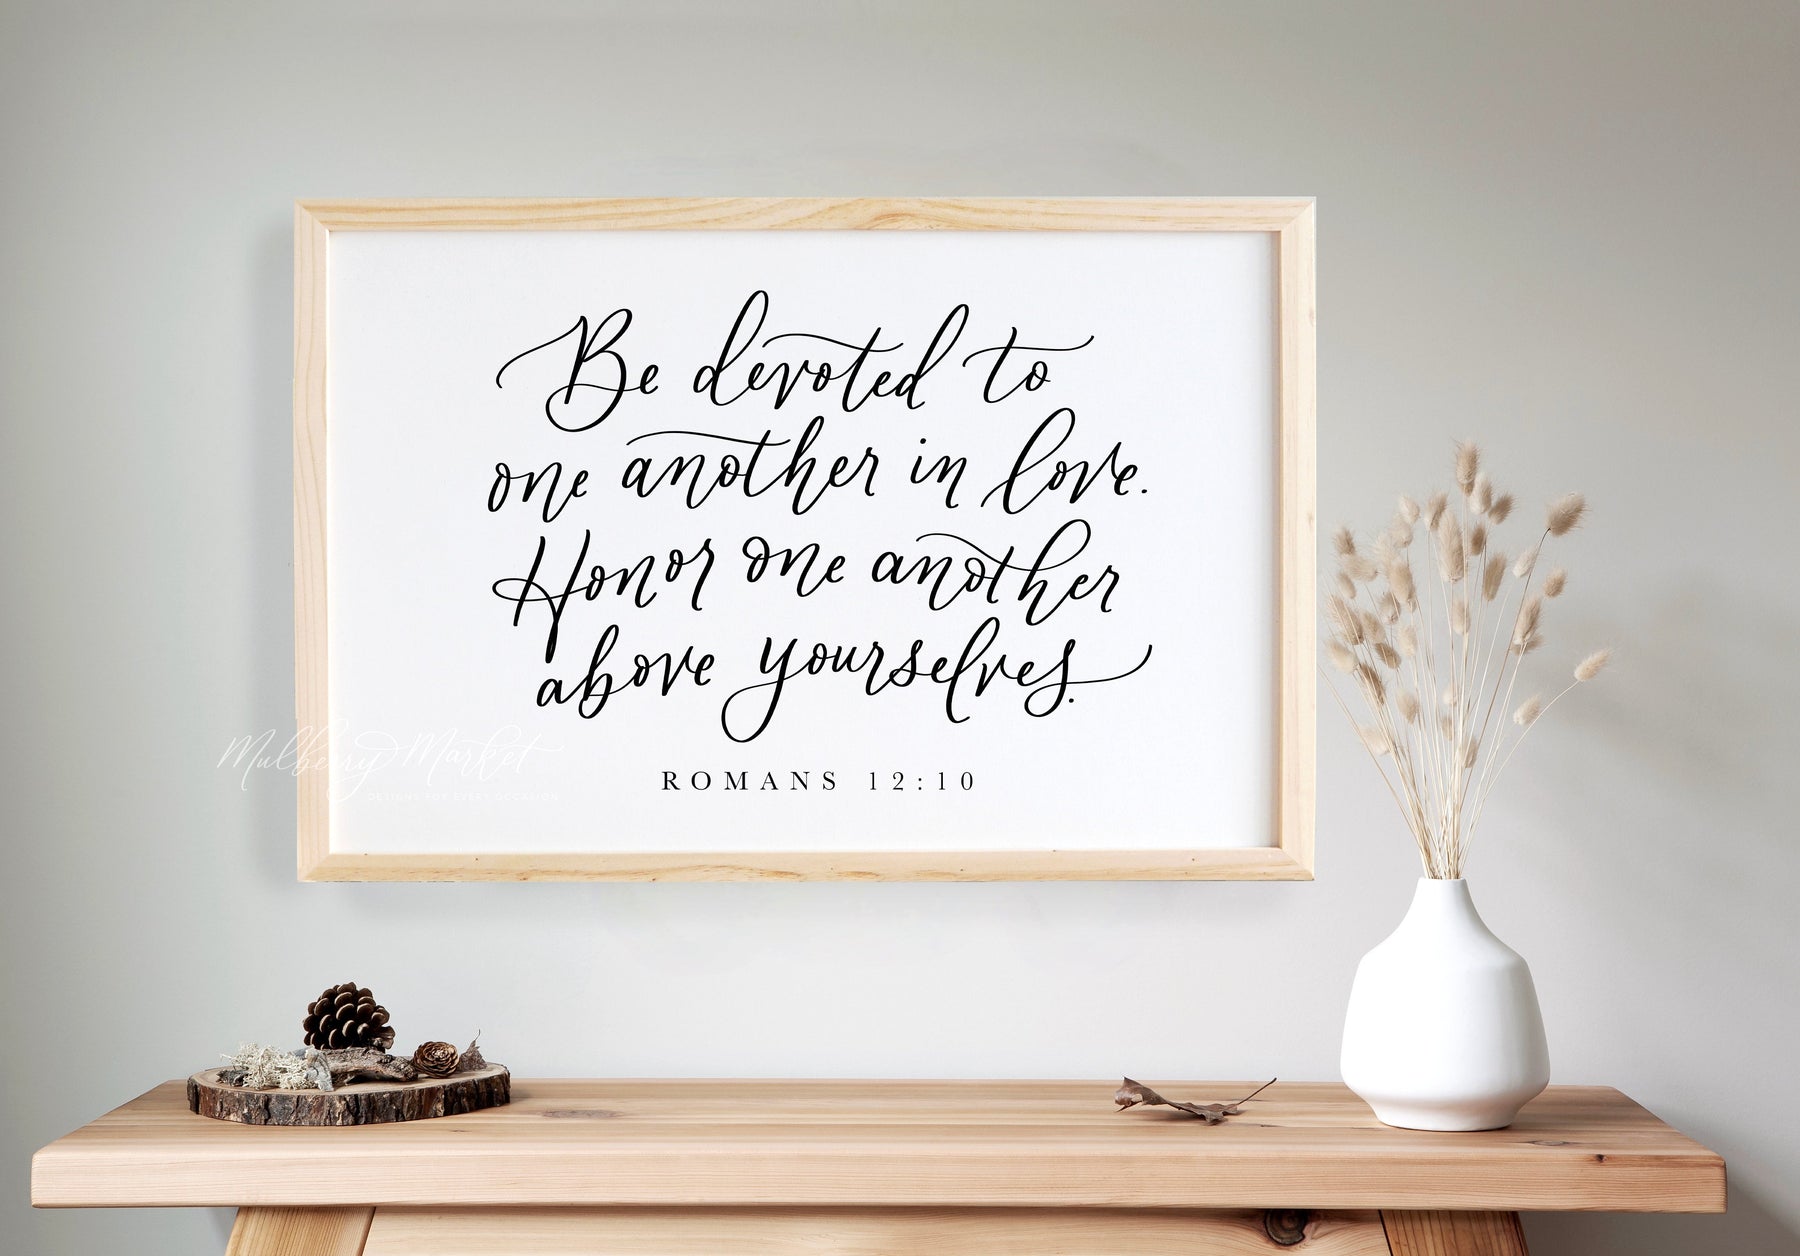 Be devoted to
one another in love.
Honor one another
above yourselves.
ROMANS 12:10
Mulberry Market
DESIGNS FOR EVERY OCCASION